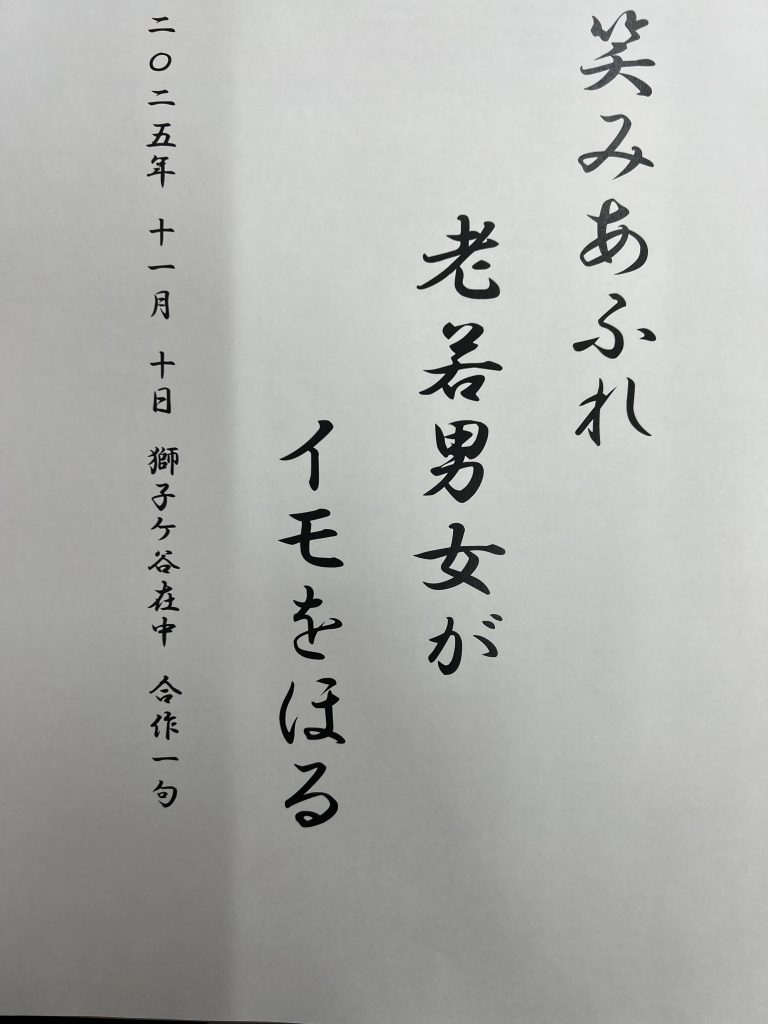 笑みあふれ
老若男女が
イモをほる
二〇二五年 十一月 十日 獅子ケ谷在中 合作一句